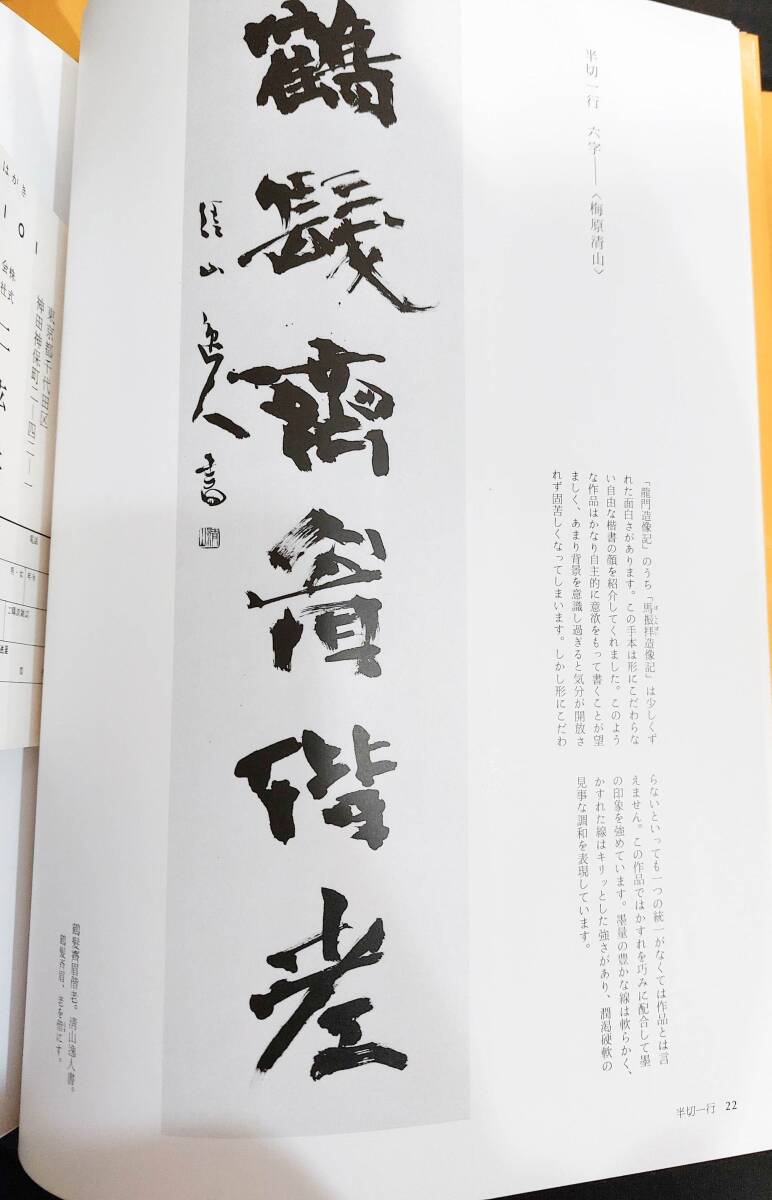 半切一行　六字――〈梅原清山〉
「龍門造像記」のうち「馬振拝造像記」は少しくず
れた面白さがあります。この手本は形にこだわらな
い自由な楷書の顔を紹介してくれました。このよう
な作品はかなり自主的に意欲をもって書くことが望
ましく、あまり背景を意識し過ぎると気分が開放さ
れず固苦しくなってしまいます。しかし形にこだわ
らないといっても一つの統一がなくては作品とは言
えません。この作品ではかすれを巧みに配合して墨
の印象を強めています。墨量の豊かな線は軟らかく、
かすれた線はキリッとした強さがあり、潤渇硬軟の
見事な調和を表現しています。
鶴髪齊眉偕老
清山逸人書
鶴髪齊眉偕老。清山逸人書。
鶴髪斉眉、老を偕にす。
半切一行 22
はがき
101
東京都千代田区
神田神保町二―四二―一
株式
会社
電話